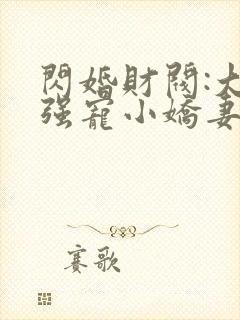 閃婚財閥:大
强寵小嬌妻
賽歌